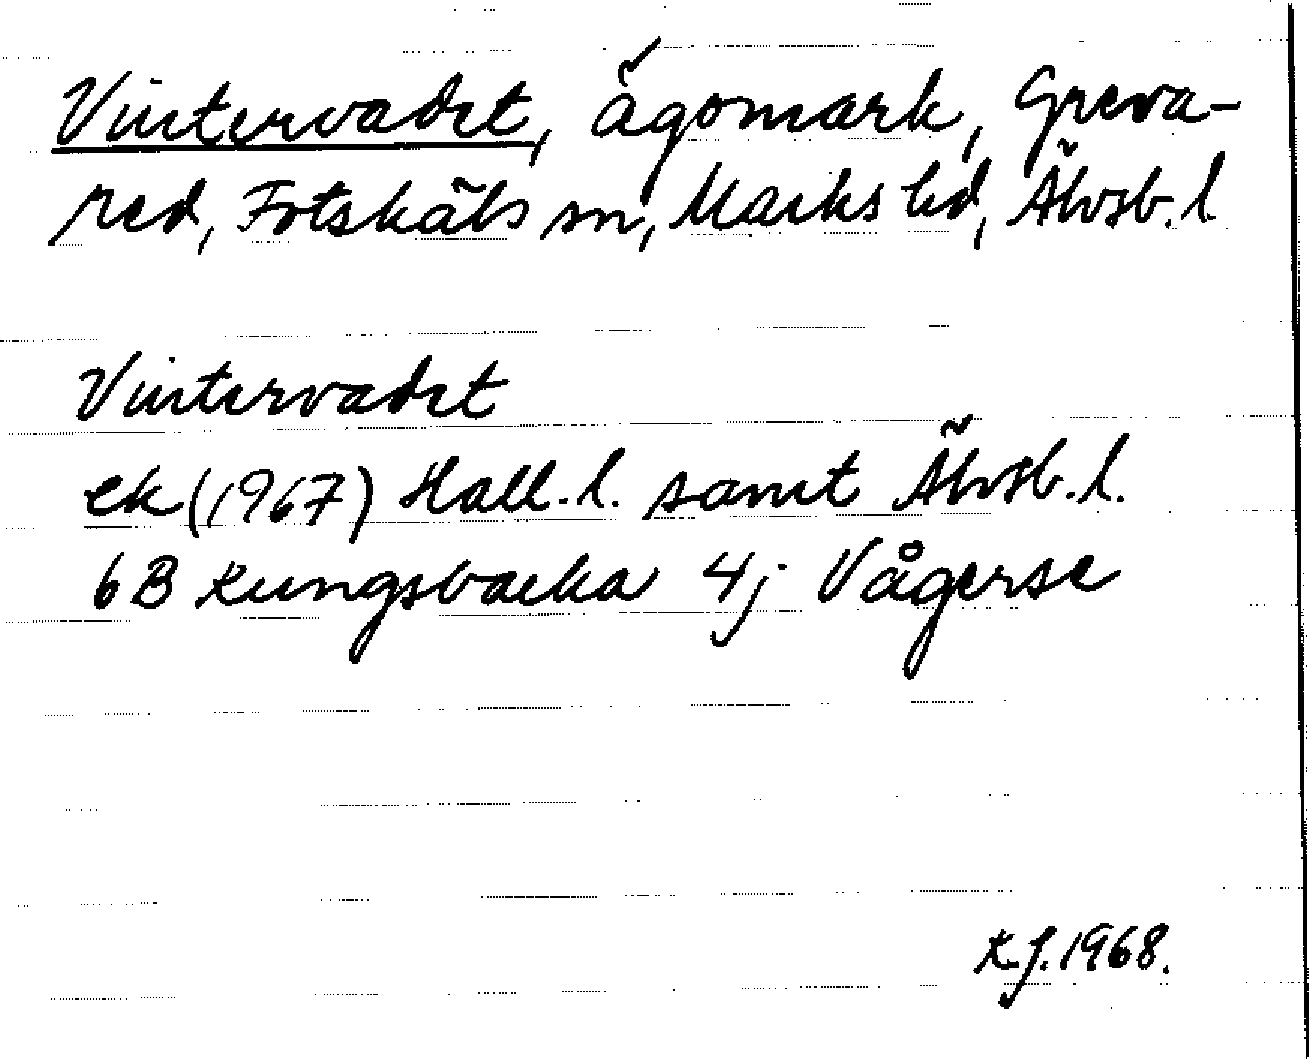 Vintervadet, ägomark, Greva-
red, Fotskäls sn, Marks hd, Älvsb. l
Vintervadet
ek (1967) Hall. l. samt Älvsb. l.
6B Kungsbacka 4j Vågerse
K.J. 1968.